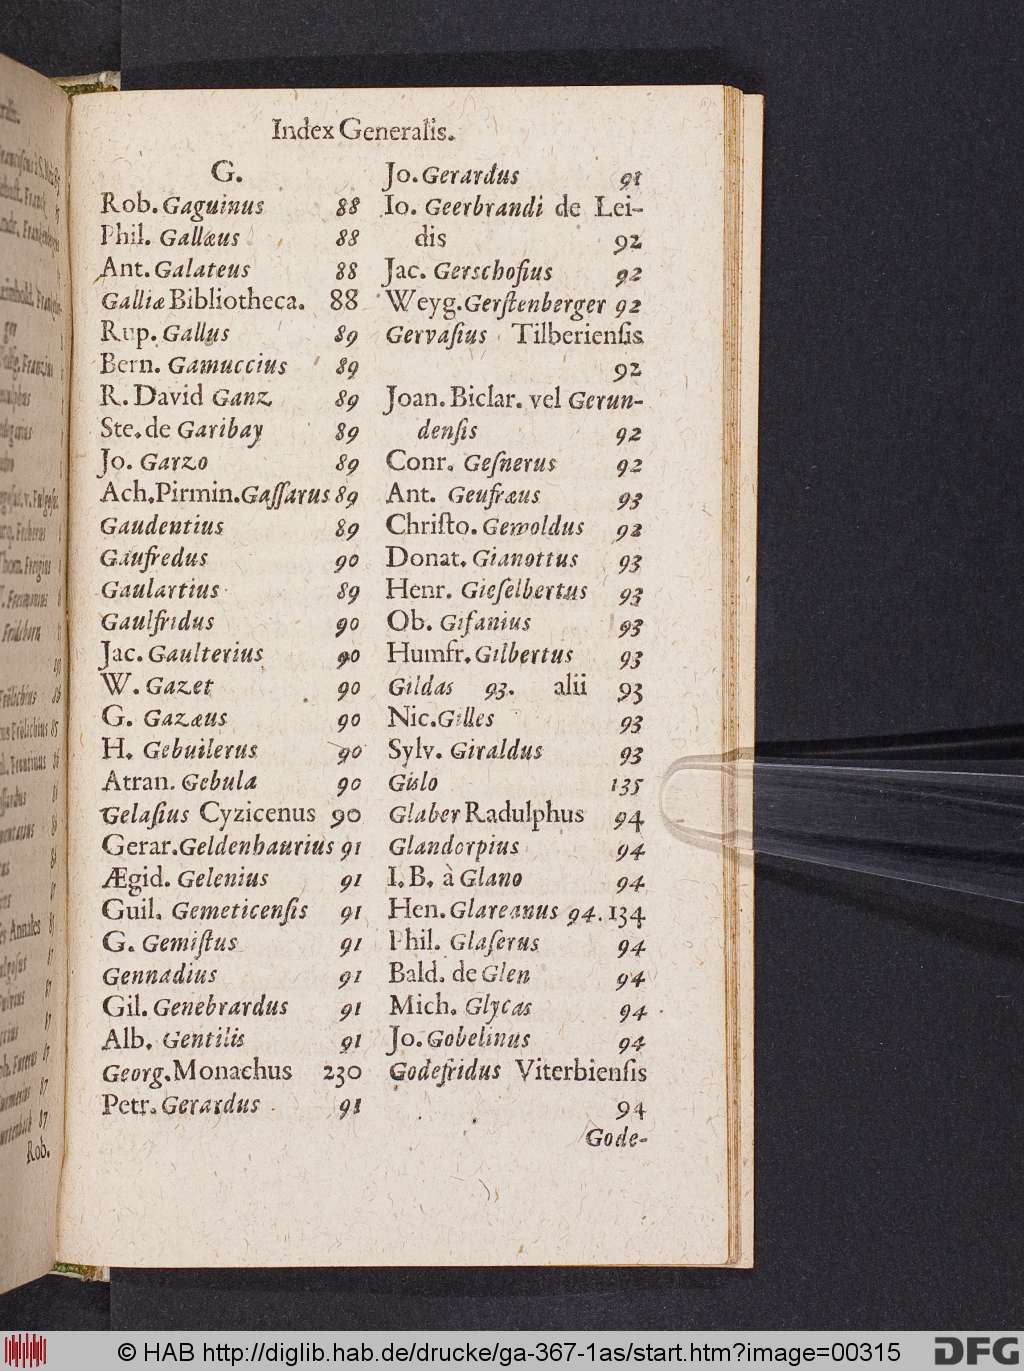 Index Generalis.
G.
Rob. Gaguinus 88
Phil. Gallæus 88
Ant. Galateus 88
Galliæ Bibliotheca. 88
Rup. Gallus 89
Bern. Gamuccius 89
R. David Ganz 89
Ste. de Garibay 89
Jo. Garzo 89
Ach. Pirmin. Gaſſarus 89
Gaudentius 89
Gaufredus 90
Gaulartius 89
Gaulfridus 90
Jac. Gaulterius 90
W. Gazet 90
G. Gazæus 90
H. Gebuilerus 90
Atran. Gebula 90
Gelaſius Cyzicenus 90
Gerar. Geldenhaurius 91
Ægid. Gelenius 91
Guil. Gemeticenſis 91
G. Gemiſtus 91
Gennadius 91
Gil. Genebrardus 91
Alb. Gentilis 91
Georg. Monachus 230
Petr. Gerardus 91
Jo. Gerardus 91
Io. Geerbrandi de Lei-
dis 92
Jac. Gerschoſius 92
Weyg. Gerſtenberger 92
Gervaſius Tilberienſis
92
Joan. Biclar. vel Gerun-
denſis 92
Conr. Geſnerus 92
Ant. Geufræus 93
Chriſto. Gewoldus 92
Donat. Gianottus 93
Henr. Gieſelbertus 93
Ob. Gifanius 93
Humfr. Gilbertus 93
Gildas 93. alii 93
Nic. Gilles 93
Sylv. Giraldus 93
Gislo 135
Glaber Radulphus 94
Glandorpius 94
I. B. à Glano 94
Hen. Glareanus 94. 134
Phil. Glaſerus 94
Bald. de Glen 94
Mich. Glycas 94
Jo. Gobelinus 94
Godefridus Viterbienſis
94
Gode-
Rob.
© HAB http://diglib.hab.de/drucke/ga-367-1as/start.htm?image=00315
DFG